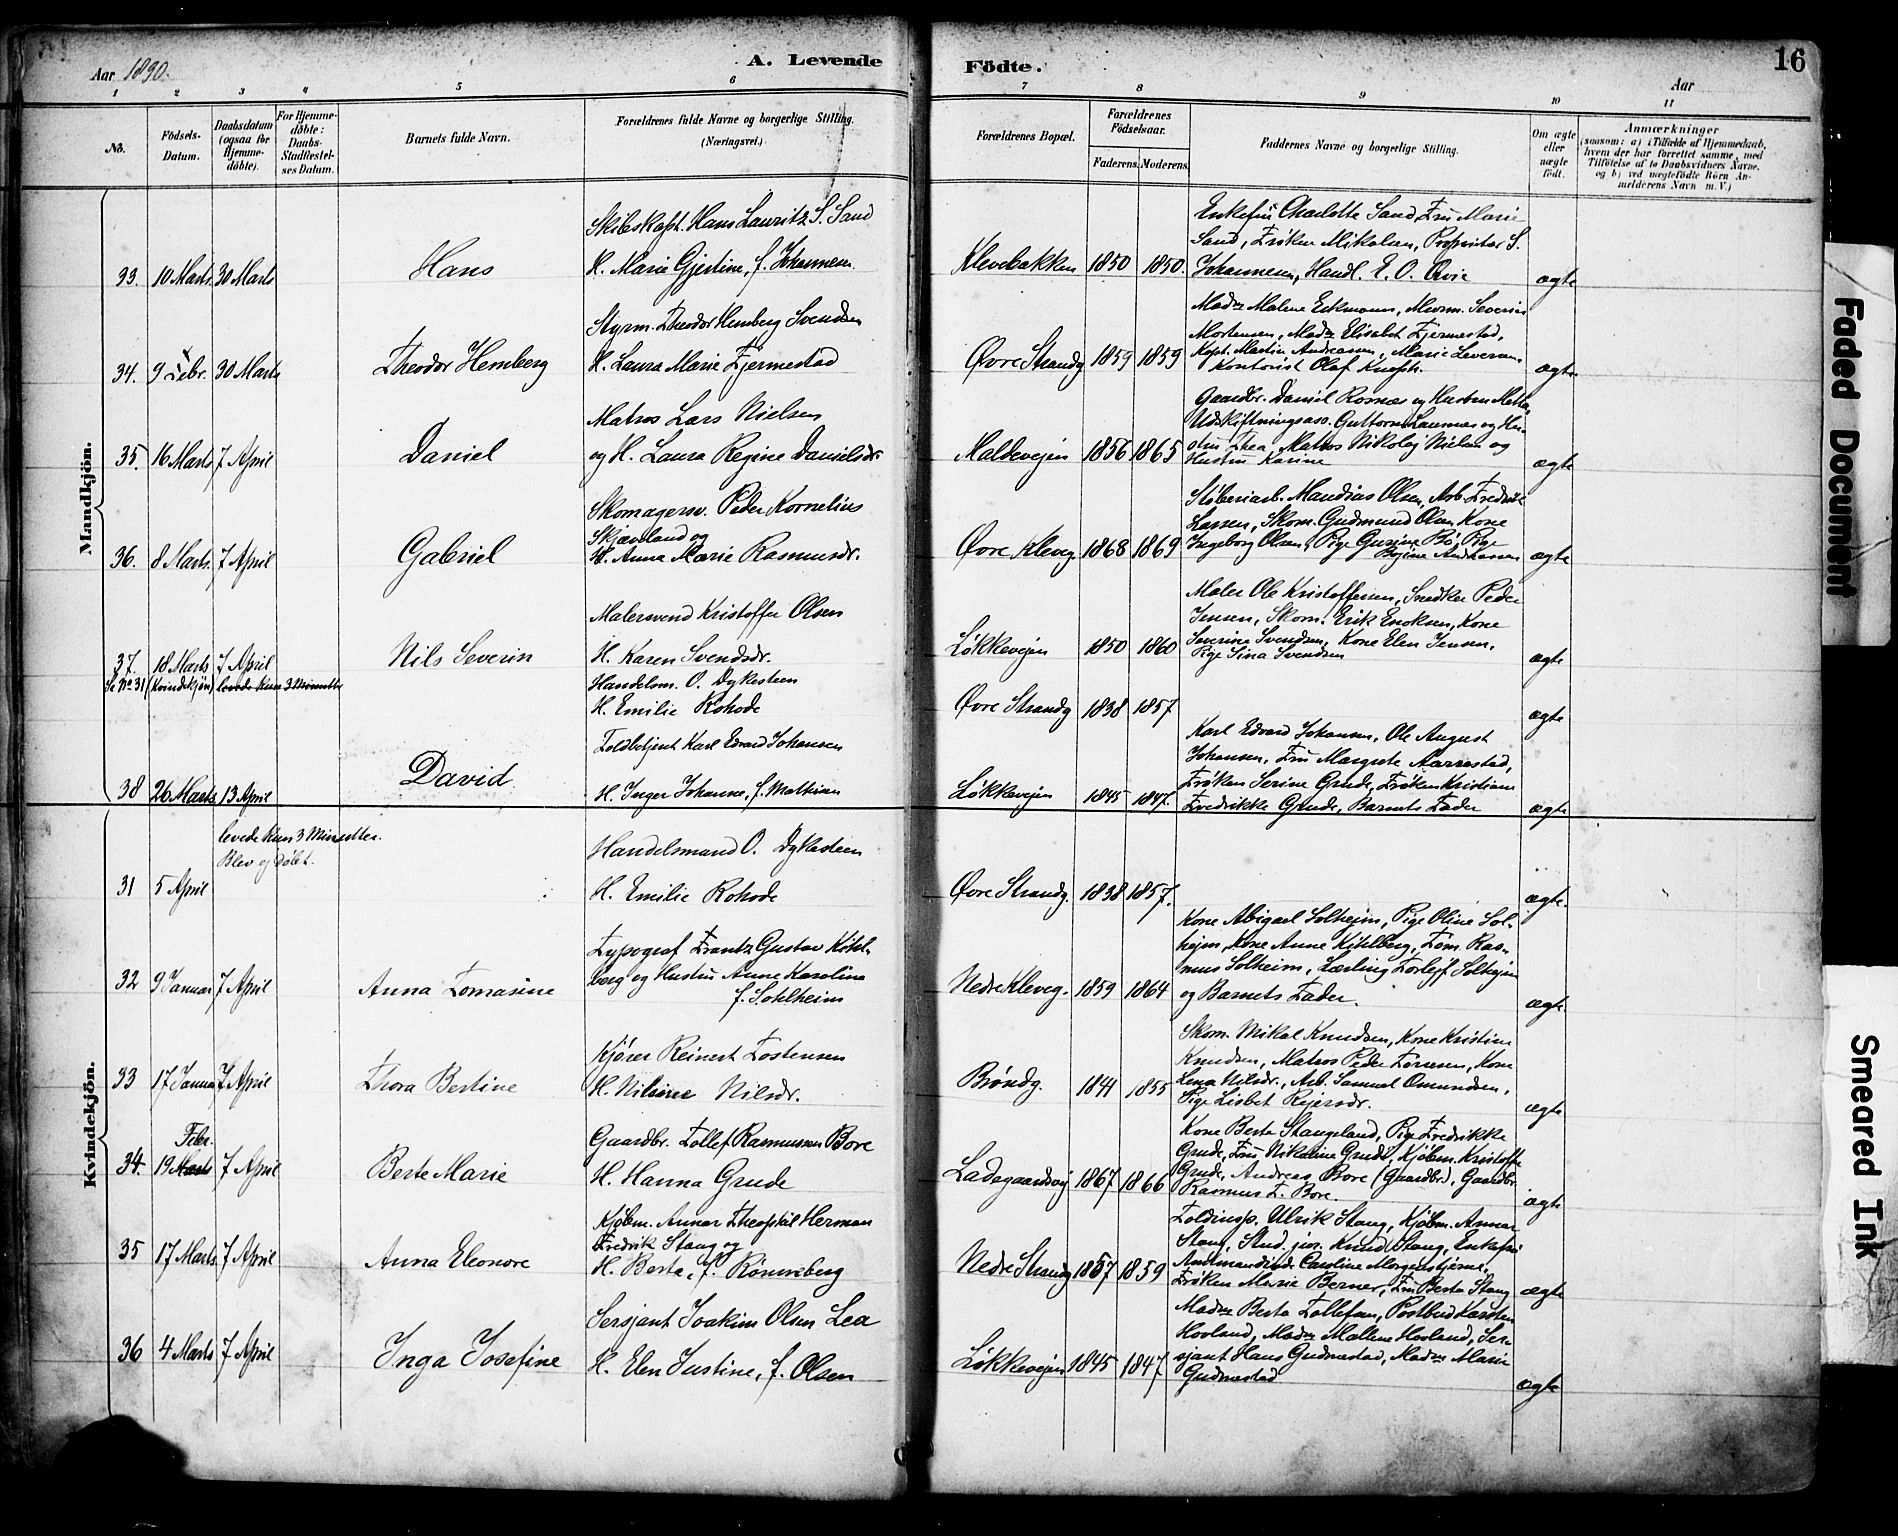 Aar 1890.
A. Levende Födte.
16
Aar
1 2 3 4 5 6 7 8 9 10 11
No.
Födsels-Datum.
Daabsdatum (ogsaa for Hjemme-döbte).
For Hjemme-döbte: Daabs-Stadfæstel-ses Datum.
Barnets fulde Navn.
Forældrenes fulde Navne og borgerlige Stilling. (Næringsvei.)
Forældrenes Bopæl.
Forældrenes Födselsaar.
Faderens. Moderens.
Faddernes Navne og borgerlige Stilling.
Om ægte eller uægte födt.
Anmærkninger
(saasom: a) i Tilfælde af Hjemmedaab,
hvem der har forrettet samme, med
Tilföielse af to Daabsvidners Navne.
og b) ved uægtefödte Börn An-
melderens Navn m. V.)
Mandkjön.
Skibskapt. Hans Lauritz S. Sand
H. Marie Gjertine, f. Johannesen
33. 10 Marts. 30 Marts
Hans
Klevebakken 1850 1850.
Enkefru Charlotte Sand, Fru Marie
Sand, Frøken Mikalsen, Proprietær S.
Johannesen, Handl. E. O.
ægte
Styrm. Theodor Hemberg Svendsen
H. Laura Marie Fjermestad
34. 9 Febr. 30 Marts
Theodor Hemberg
Øvre Strandg 1859 1859
Madm Malene Eckmann, Severin
Mortensen, Madm Elisabet Fjermestad,
Kapt. Martin Andreasen, Marie Seversen.
Kontorist Olaf
ægte.
Matros Lars Nielsen
og H. Laura Regine Danielsdr
35. 16 Marts 7 April
Daniel
Maldevejen 1856 1865
Gaardbr. Daniel Rosnæs og Hustru
Udskiftningsass. Guttorm Launes og Hu-
stru Thea, Matros Nikolaj Nielsen og
Hustru Karine
ægte
Skomagersv. Peder Kornelius
Skjævland og
H. Anna Marie Rasmusdr.
36. 8 Marts. 7 April
Gabriel
Øvre Kleveg 1868 1869
Støberiarb. Mandius Olsen, Arb. Fredrik
Larsen, Skom. Gudmund Olsen Kone
Ingeborg Olsen, Pige Gurine Bø, Pige
ægte
Malersvend Kristoffer Olsen
H. Karen Svendsdr.
37. 18 Marts 7 April
Nils Severin
Løkkevejen 1850 1860
Maler Ole Kristoffersen, Snedker Peder
Jensen, Skom. Erik Enoksen, Kone
Severine Svendsen, Kone Elen Jensen,
Pige Sina Svendsen
ægte
Se No 31 (Kvindekjøn) levede kun 3 Minutter
Handelsm. O. Dykesteen
H. Emilie Rohode
Øvre Strandg 1838 1857
ægte
Toldbetjent Karl Edvard Johansen
H. Inger Johanne, f. Mathisen
38 26 Marts 13 April
David.
Løkkevejen 1845 1847.
Karl Edvard Johansen, Ole August
Johansen, Fru Margrete Aarrestad,
Frøken Serine Grude, Frøken Kristiane
Fredrikke Grude, Barnets Fader
ægte
Kvindekjön.
levede kun 3 Minutter.
Blev ej døbt.
Handelsmand O. Dykesteen
H. Emilie Rohode
31 5 April
Øvre Strandg. 1838 1857.
ægte.
Typograf Frantz Gustav Köhl-
berg og Hustru Anne Karoline
f. Sohlheim
32 9 Januar 7 April
Anna Tomasine
Nedre Kleveg. 1859 1864
Kone Abigael Solheim, Pige Oline Sol-
hejm, Kone Anne Köhlberg, Tøm. Ras-
mus Solheim, Lærling Torlejf Solhejm
og Barnets Fader.
ægte.
Kjører Reinert Tostensen
H. Nilsine Nilsdr.
33 17 Januar 7 April
Thora Bertine
Brøndg. 1841 1855
Skom. Mikal Knudsen, Kone Kristine
Knudsen, Matros Peder Tørresen, Kone
Lena Nilsdr., Arb. Samuel Omundsen,
Pige Lisbet Rejersdr.
ægte
Gaardbr. Tollef Rasmussen Bore
H. Hanna Grude
Febr.
34. 19 Marts 7 April
Berte Marie
Ladegaardsvej 1867 1866
Kone Berte Stangeland, Pige Fredrikke
Grude, Fru Nikoline Grude, Kjøbm. Kristoffer
Grude, Andreas Bore (Gaardbr), Gaardbr.
Rasmus T. Bore.
ægte
Kjøbm. Annar Theophil Herman
Fredrik Stang og
H. Berta, f. Rönneberg
35 17 Marts 7 April
Anna Eleonore
Nedre Strandg 1857 1859
Toldinsp. Ulrik Stang, Kjøbm. Annar
Stang, Stud. jur. Knud Stang, Enkefru
Amtmandinde Caroline Morgenstjerne,
Frøken Marie Berner, Fru Berta Stang
ægte
Sersjant Joakim Olsen Lea
H. Elen Justine, f. Olsen
36 4 Marts 7 April
Inga Josefine
Løkkevejen 1845 1847
Madm Berta Tollefsen, Postbud Karsten
Hovland, Madm Mallene Hovland, Ser-
sjant Hans Gudmestad, Madm Marie
Gudmestad
ægte
Faded Document
Smeared Ink